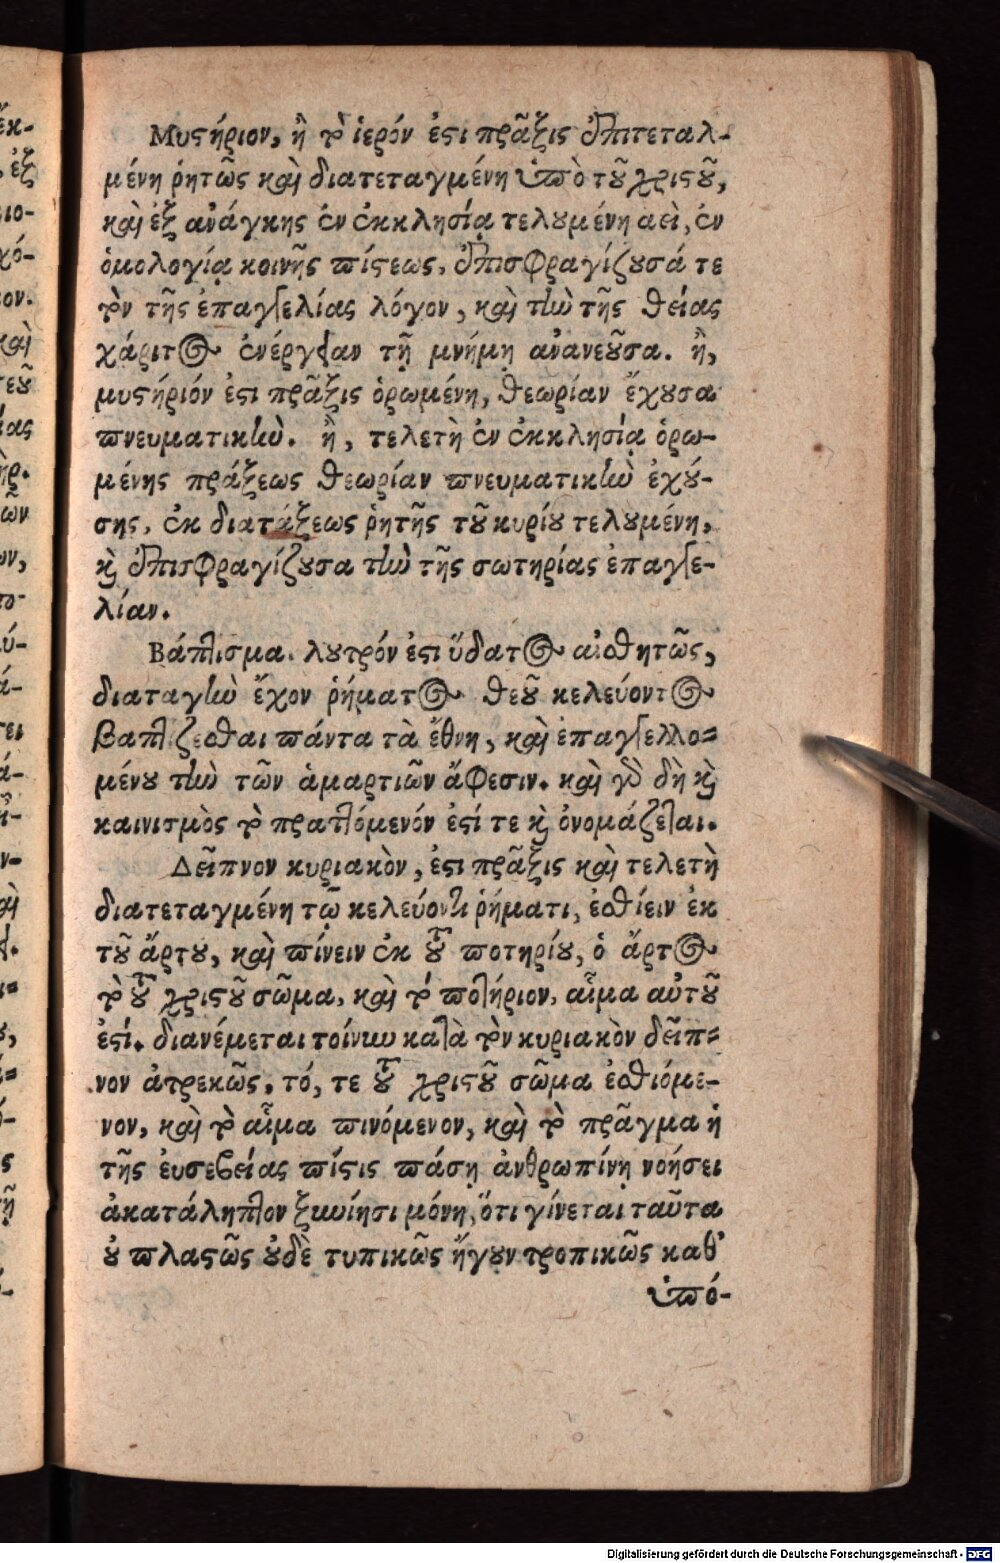 Μυστήριον, ἢ τὸ ἱερόν ἐστι πρᾶξις ἐπιτεταλ-
μένη ῥητῶς καὶ διατεταγμένη ὑπὸ τοῦ χριστοῦ,
καὶ ἐξ ἀνάγκης ἐν ἐκκλησίᾳ τελουμένη ἀεὶ, ἐν
ὁμολογίᾳ κοινῆς πίστεως, ἐπισφραγίζουσά τε
τὸν τῆς ἐπαγγελίας λόγον, καὶ τὴν τῆς θείας
χάριτος ἐνέργειαν τῇ μνήμῃ ἀνανεοῦσα. ἢ,
μυστήριόν ἐστι πρᾶξις ὁρωμένη, θεωρίαν ἔχουσα
πνευματικὴν. ἢ, τελετὴ ἐν ἐκκλησίᾳ ὁρω-
μένης πράξεως θεωρίαν πνευματικὴν ἐχού-
σης, ἐκ διατάξεως ῥητῆς τοῦ κυρίου τελουμένη,
καὶ ἐπισφραγίζουσα τὴν τῆς σωτηρίας ἐπαγγε-
λίαν.
Βάπτισμα. λουτρόν ἐστι ὕδατος αἰσθητῶς,
διαταγὴν ἔχον ῥήματος θεοῦ κελεύοντος
βαπτίζεσθαι πάντα τὰ ἔθνη, καὶ ἐπαγγελλο-
μένου τὴν τῶν ἁμαρτιῶν ἄφεσιν. καὶ γὰρ δὴ καὶ
καινισμὸς τὸ πραττόμενόν ἐστί τε καὶ ὀνομάζεται.
Δεῖπνον κυριακὸν, ἐστι πρᾶξις καὶ τελετὴ
διατεταγμένη τῷ κελεύοντι ῥήματι, ἐσθίειν ἐκ
τοῦ ἄρτου, καὶ πίνειν ἐκ τοῦ ποτηρίου, ὁ ἄρτος
τὸ τοῦ χριστοῦ σῶμα, καὶ τὸ ποτήριον, αἷμα αὐτοῦ
ἐστί. διανέμεται τοίνυν κατὰ τὸν κυριακὸν δεῖπ-
νον ἀτρεκῶς, τό, τε τοῦ χριστοῦ σῶμα ἐσθιόμε-
νον, καὶ τὸ αἷμα πινόμενον, καὶ τὸ πρᾶγμα ἡ
τῆς ἐυσεβείας πίστις πάσῃ ἀνθρωπίνῃ νοήσει
ἀκατάληπτον ξυνίησι μόνη, ὅτι γίνεται ταῦτα
οὐ πλαστῶς οὐδὲ τυπικῶς ἤγουν τροπικῶς καθ'
ὑπό-
Digitalisierung gefördert durch die Deutsche Forschungsgemeinschaft - DFG